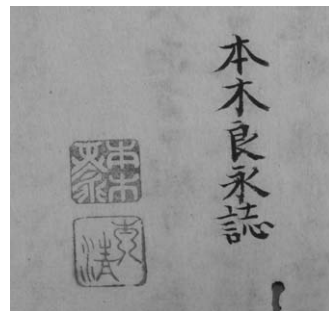 本木良永誌